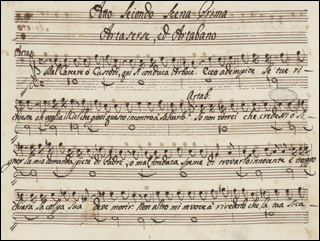 Atto Secondo Scena Prima
Artaserse ed Artabano
Artas.
Dal Carcere o Custodi, qui si conduca Arbace. Ecco adempite le tue ri-
Artab.
chieste ah voglia il Ciel che giovi questo incontro a salvarlo. Io non vorrei che credessi o Si-
gnor la mia domanda pieta di Padre, o mal fondata speme di trovarlo innocente è troppo
chiara la colpa sua deve morir. Non altro mi muove a rivederlo che la tua sicu-